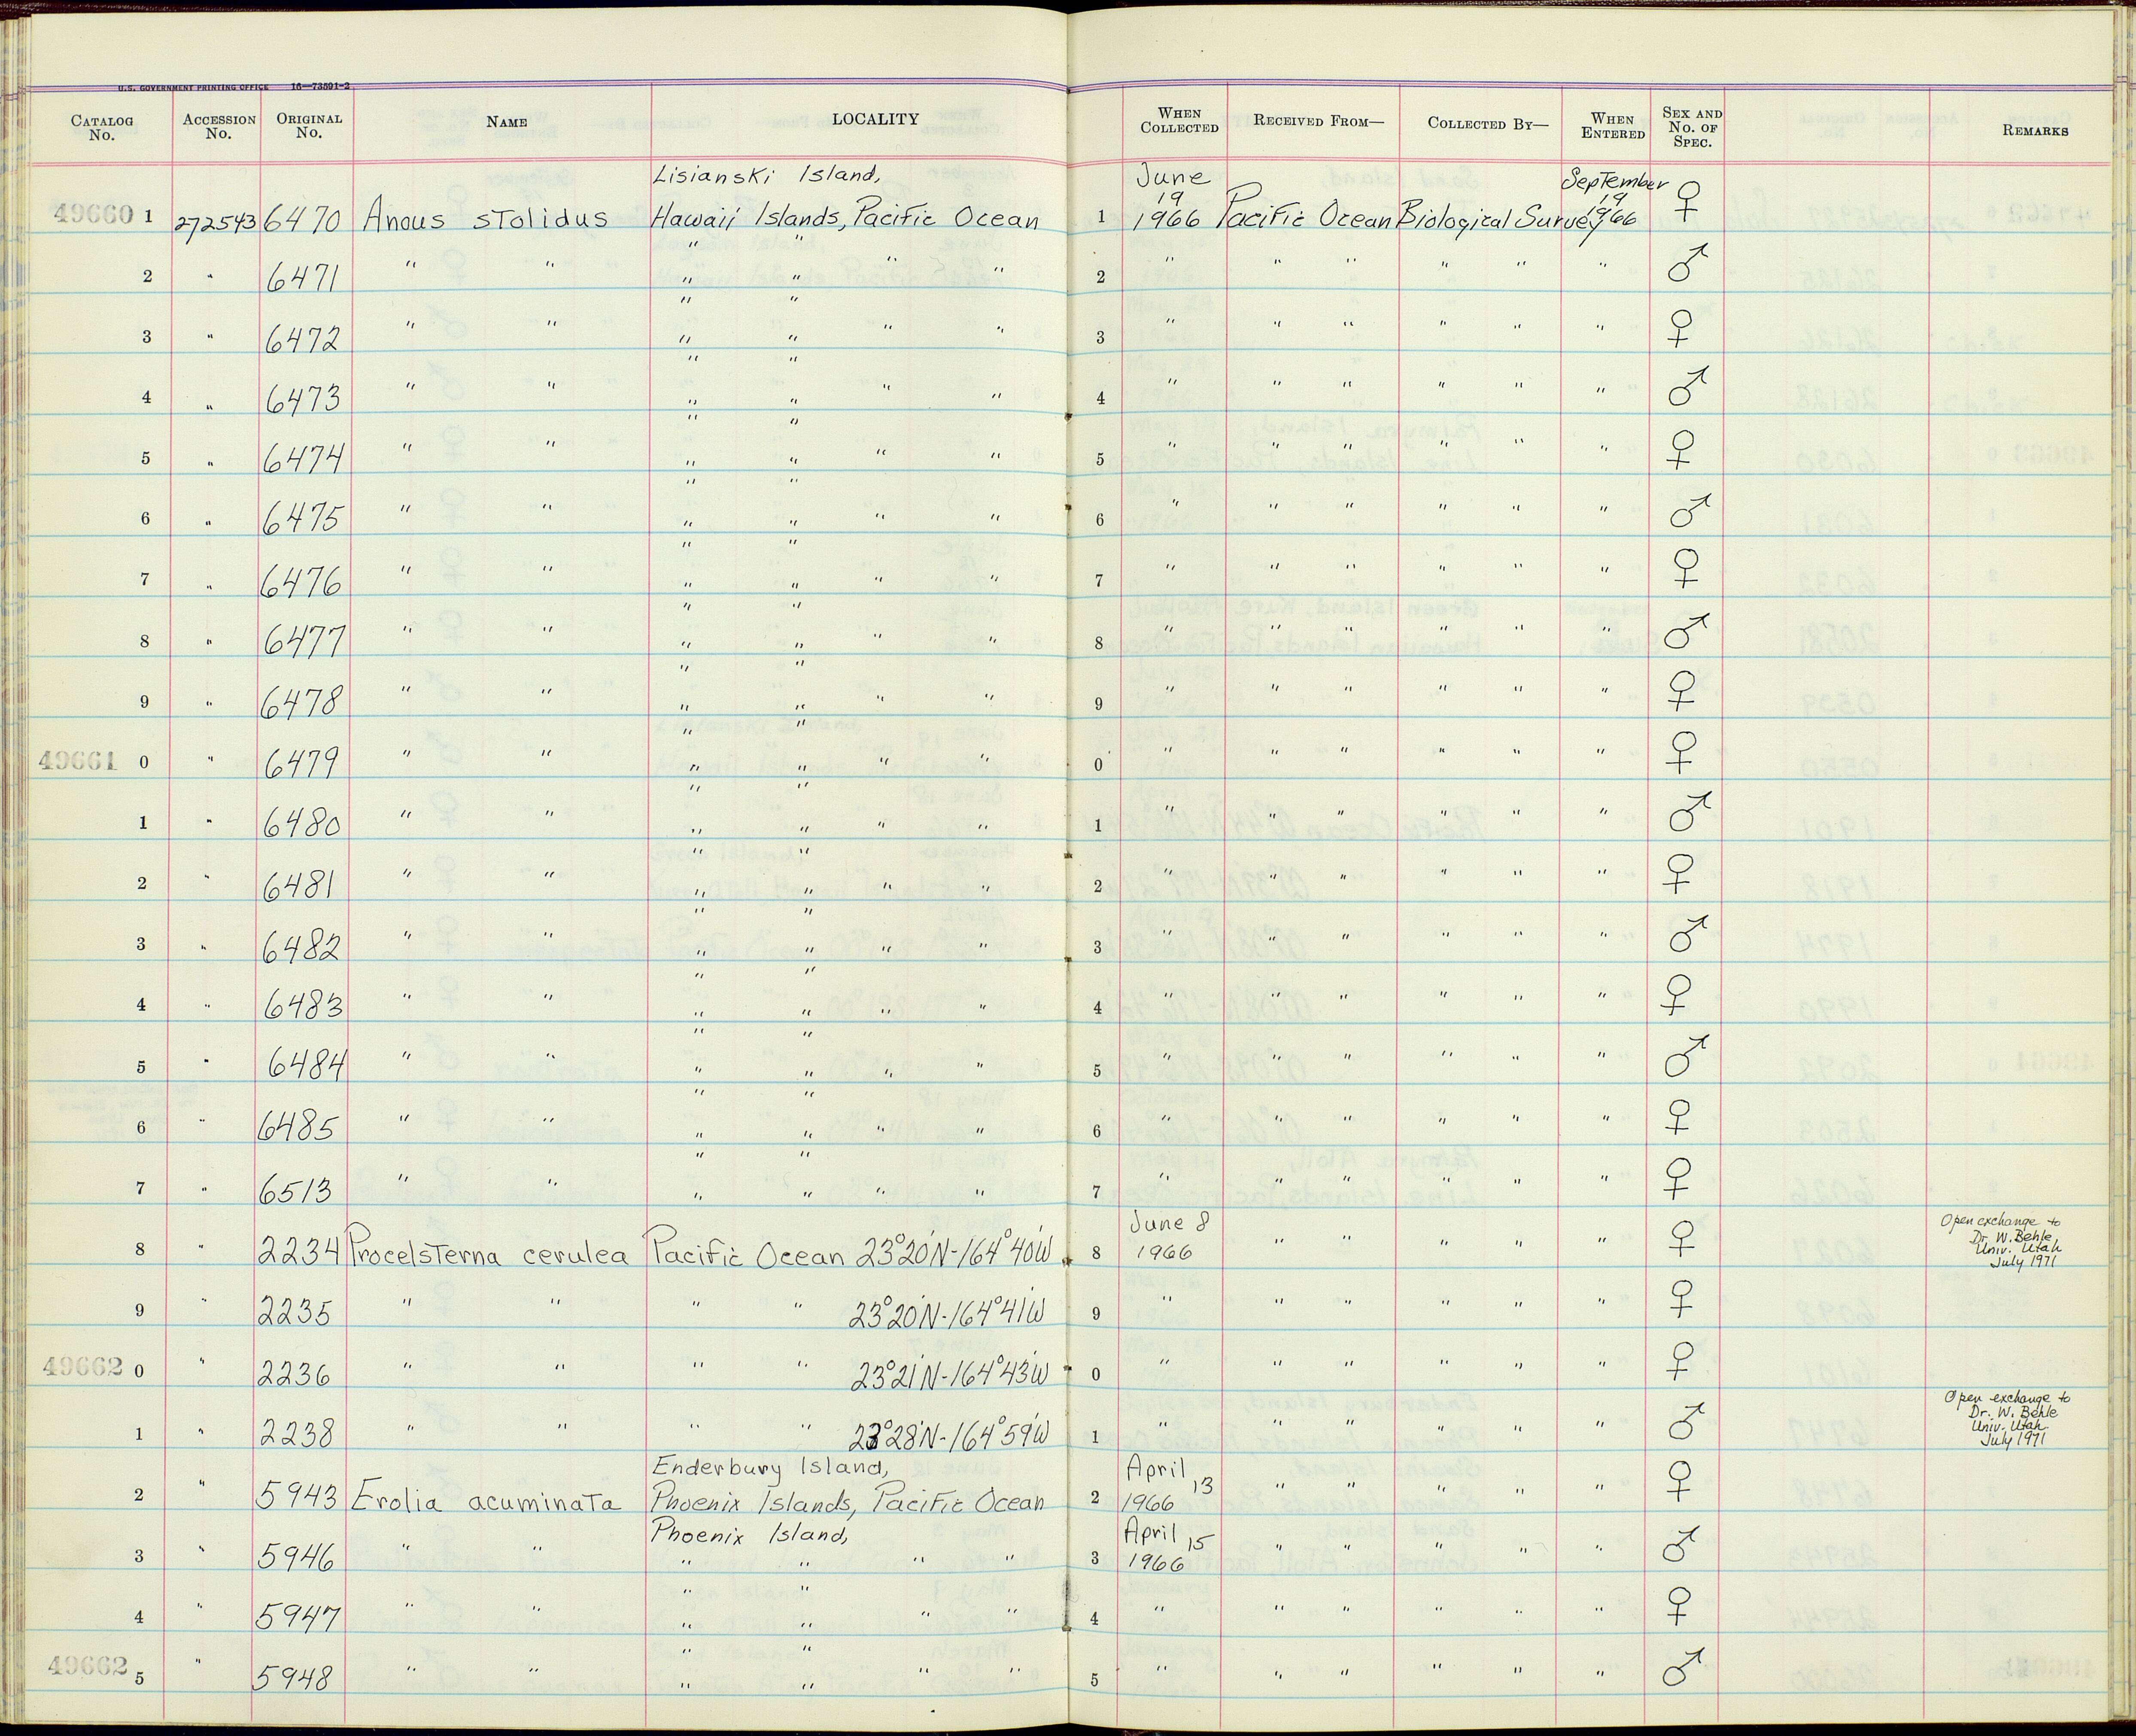 U.S. GOVERNMENT PRINTING OFFICE 16—73591-2
CATALOG No. ACCESSION No. ORIGINAL No. NAME LOCALITY WHEN COLLECTED RECEIVED FROM— COLLECTED BY— WHEN ENTERED SEX AND No. OF SPEC. REMARKS
Lisianski Island, June 19 September 19
49660 1 272543 6470 Anous stolidus Hawaii Islands, Pacific Ocean 1 1966 Pacific Ocean Biological Survey 1966 ♀
" "
2 " 6471 " " " " " " 2 " " " " " " ♂
" "
3 " 6472 " " " " " " 3 " " " " " " ♀
" "
4 " 6473 " " " " " " 4 " " " " " " ♂
" "
5 " 6474 " " " " " " 5 " " " " " " ♀
" "
6 " 6475 " " " " " " 6 " " " " " " ♂
" "
7 " 6476 " " " " " " 7 " " " " " " ♀
" "
8 " 6477 " " " " " " 8 " " " " " " ♂
" "
9 " 6478 " " " " " " 9 " " " " " " ♀
" "
49661 0 " 6479 " " " " " " 0 " " " " " " ♀
" "
1 " 6480 " " " " " " 1 " " " " " " ♂
" "
2 " 6481 " " " " " " 2 " " " " " " ♀
" "
3 " 6482 " " " " " " 3 " " " " " " ♂
" "
4 " 6483 " " " " " " 4 " " " " " " ♀
" "
5 " 6484 " " " " " " 5 " " " " " " ♂
" "
6 " 6485 " " " " " " 6 " " " " " " ♀
" "
7 " 6513 " " " " " " 7 " " " " " " ♀
8 " 2234 Procelsterna cerulea Pacific Ocean 23°20'N-164°40'W 8 June 8 1966 " " " " " ♀ Open exchange to
Dr. W. Behle,
Univ. Utah
July 1971
9 " 2235 " " " " 23°20'N-164°41'W 9 " " " " " " ♀
49662 0 " 2236 " " " " 23°21'N-164°43'W 0 " " " " " " ♀
1 " 2238 " " " " 23°28'N-164°59'W 1 " " " " " " ♂ Open exchange to
Dr. W. Behle
Univ. Utah
July 1971
Enderbury Island, April 13
2 " 5943 Erolia acuminata Phoenix Islands, Pacific Ocean 2 1966 " " " " " ♀
Phoenix Island, April 15
3 " 5946 " " " " " " 3 1966 " " " " " ♂
" "
4 " 5947 " " " " " " 4 " " " " " " ♀
" "
49662 5 " 5948 " " " " " " 5 " " " " " " ♂